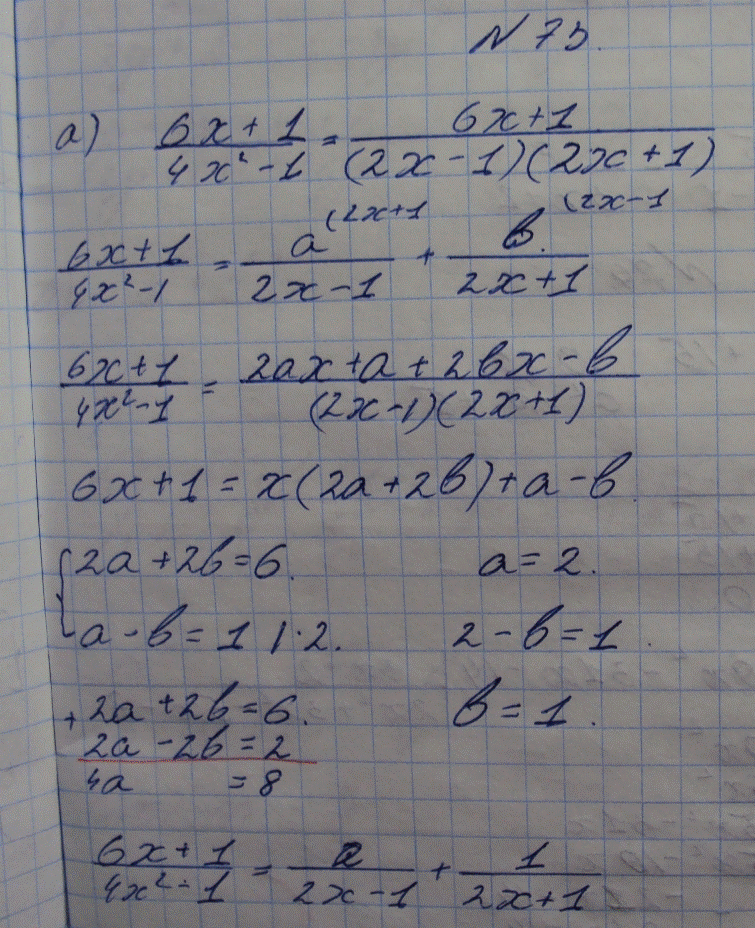 N 75.
a) (6x+1)/(4x²-1) = (6x+1)/((2x-1)(2x+1))
(6x+1)/(4x²-1) = a (2x+1 /(2x-1) + b. (2x-1 /(2x+1)
(6x+1)/(4x²-1) = (2ax+a+2bx-b)/((2x-1)(2x+1))
6x+1 = x(2a+2b)+a-b
{2a+2b=6. a=2.
a-b=1 |·2. 2-b=1.
+ 2a+2b=6. b=1.
2a-2b=2
4a =8
(6x+1)/(4x²-1) = 2/(2x-1) + 1/(2x+1)